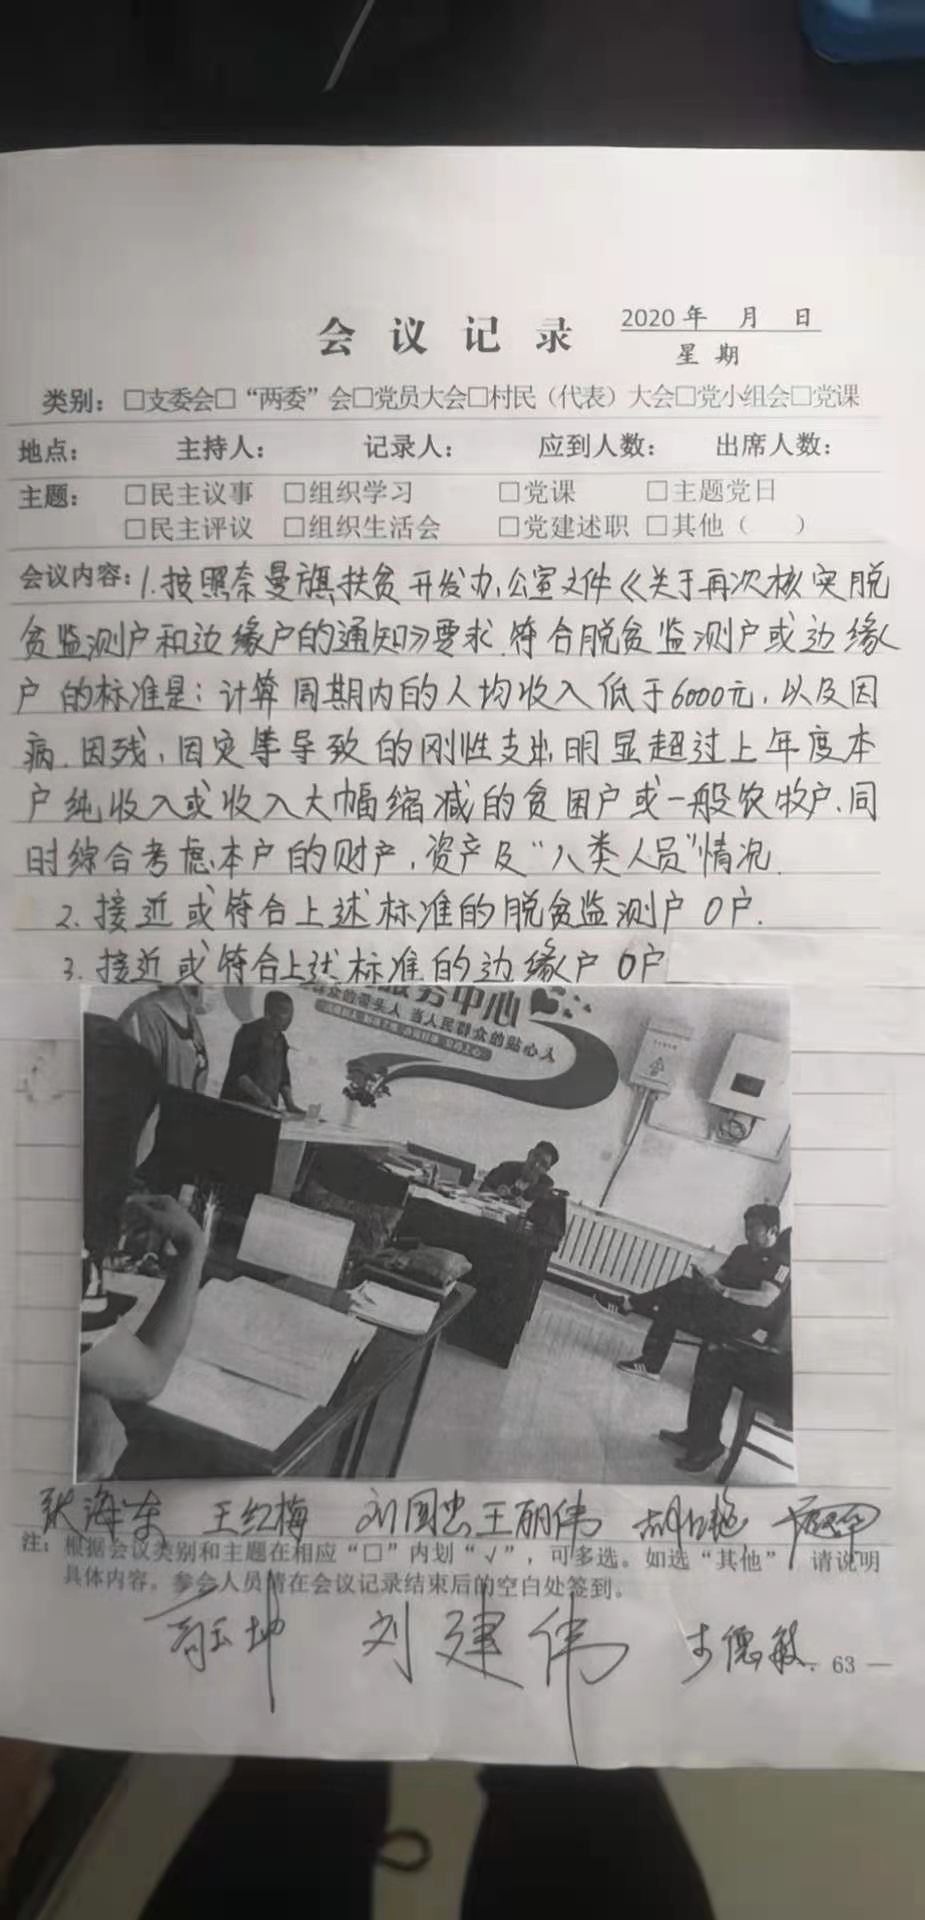 会议记录
2020年 月 日
星期
类别：□支委会□“两委”会□党员大会□村民（代表）大会□党小组会□党课
地点： 主持人： 记录人： 应到人数： 出席人数：
主题： □民主议事 □组织学习 □党课 □主题党日
□民主评议 □组织生活会 □党建述职 □其他（ ）
会议内容：1.按照奈曼旗扶贫开发办公室文件《关于再次核实脱
贫监测户和边缘户的通知》要求.符合脱贫监测户或边缘
户的标准是：计算周期内的人均收入低于6000元，以及因
病、因残，因灾等导致的刚性支出明显超过上年度本
户纯收入或收入大幅缩减的贫困户或一般农牧户.同
时综合考虑本户的财产，资产及“八类人员”情况.
2.接近或符合上述标准的脱贫监测户0户.
3.接近或符合上述标准的边缘户0户
务中心
群众的带头人 当人民群众的贴心人
张海东 王红梅 刘国忠 王丽伟
注：根据会议类别和主题在相应“□”内划“√”，可多选。如选“其他” 请说明
具体内容。参会人员请在会议记录结束后的空白处签到。
刘建伟 德敏
63 —